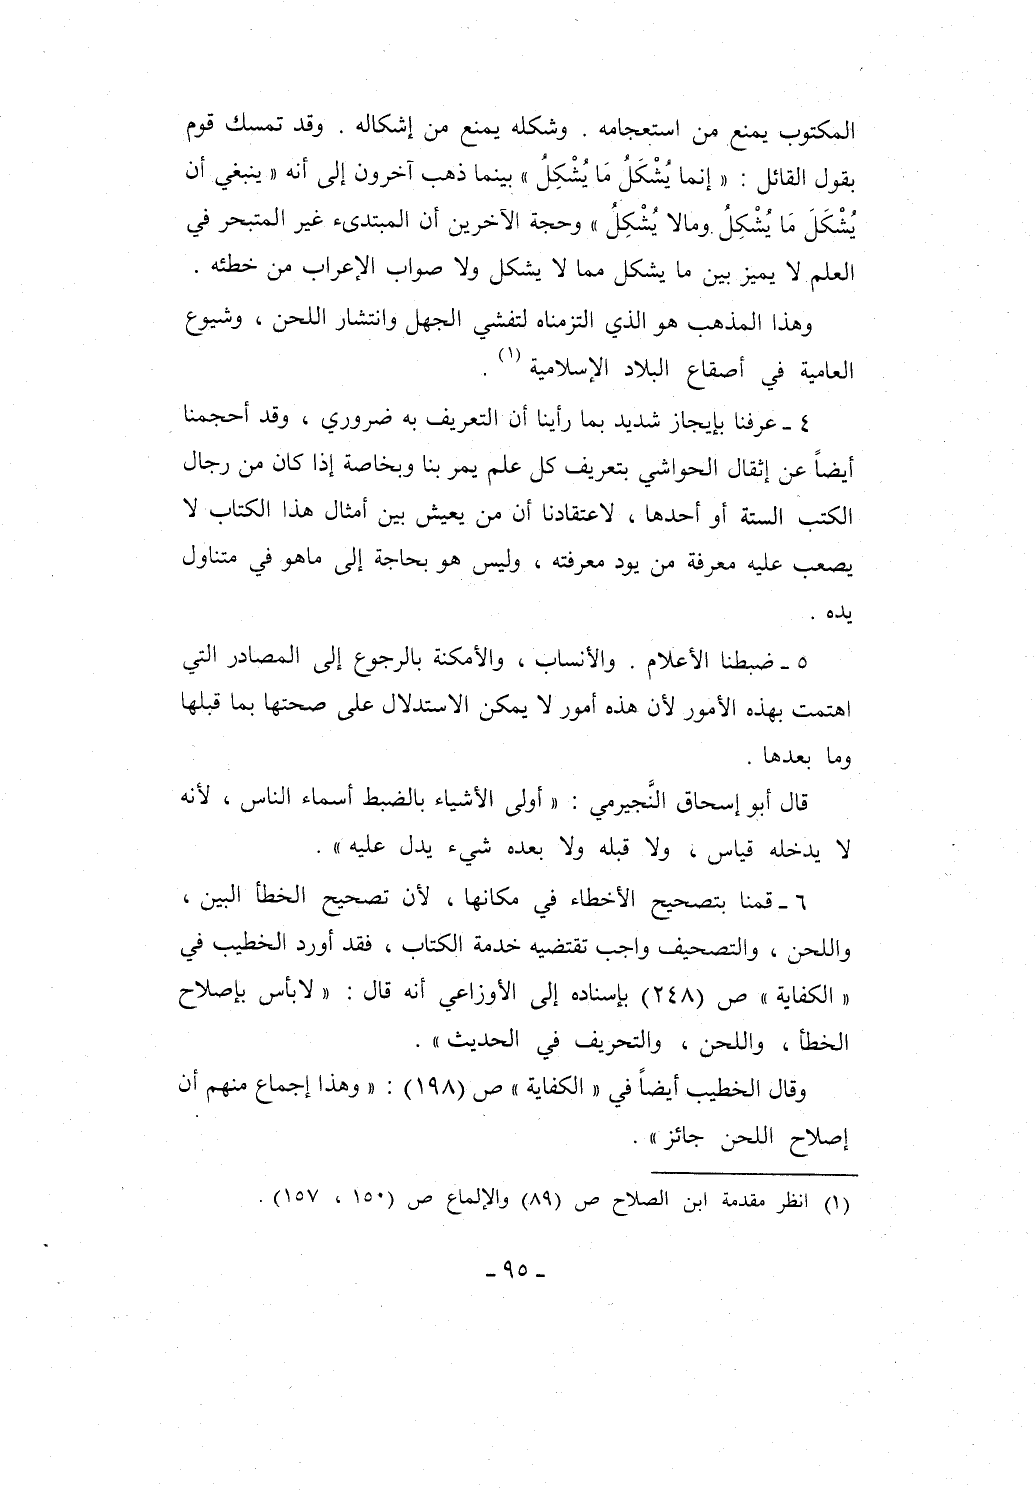 المكتوب يمنع من استعجامه . وشكله يمنع من إشكاله . وقد تمسك قوم
بقول القائل : « إنما يُشْكَلُ مَا يُشْكِلُ » بينما ذهب آخرون إلى أنه « ينبغي أن
يُشْكَلَ مَا يُشْكِلُ ومالا يُشْكِلُ » وحجة الآخرين أن المبتدىء غير المتبحر في
العلم لا يميز بين ما يشكل مما لا يشكل ولا صواب الإعراب من خطئه .
وهذا المذهب هو الذي التزمناه لتفشي الجهل وانتشار اللحن ، وشيوع
العامية في أصقاع البلاد الإسلامية (١) .
٤ ـ عرفنا بإيجاز شديد بما رأينا أن التعريف به ضروري ، وقد أحجمنا
أيضاً عن إثقال الحواشي بتعريف كل علم يمر بنا وبخاصة إذا كان من رجال
الكتب الستة أو أحدها ، لاعتقادنا أن من يعيش بين أمثال هذا الكتاب لا
يصعب عليه معرفة من يود معرفته ، وليس هو بحاجة إلى ماهو في متناول
يده .
٥ ـ ضبطنا الأعلام . والأنساب ، والأمكنة بالرجوع إلى المصادر التي
اهتمت بهذه الأمور لأن هذه أمور لا يمكن الاستدلال على صحتها بما قبلها
وما بعدها .
قال أبو إسحاق النَّجيرمي : « أولى الأشياء بالضبط أسماء الناس ، لأنه
لا يدخله قياس ، ولا قبله ولا بعده شيء يدل عليه » .
٦ ـ قمنا بتصحيح الأخطاء في مكانها ، لأن تصحيح الخطأ البين ،
واللحن ، والتصحيف واجب تقتضيه خدمة الكتاب ، فقد أورد الخطيب في
« الكفاية » ص (٢٤٨) بإسناده إلى الأوزاعي أنه قال : « لابأس بإصلاح
الخطأ ، واللحن ، والتحريف في الحديث » .
وقال الخطيب أيضاً في « الكفاية » ص (١٩٨) : « وهذا إجماع منهم أن
إصلاح اللحن جائز » .
(١) انظر مقدمة ابن الصلاح ص (٨٩) والإلماع ص (١٥٠ ، ١٥٧) .
ـ ٩٥ ـ